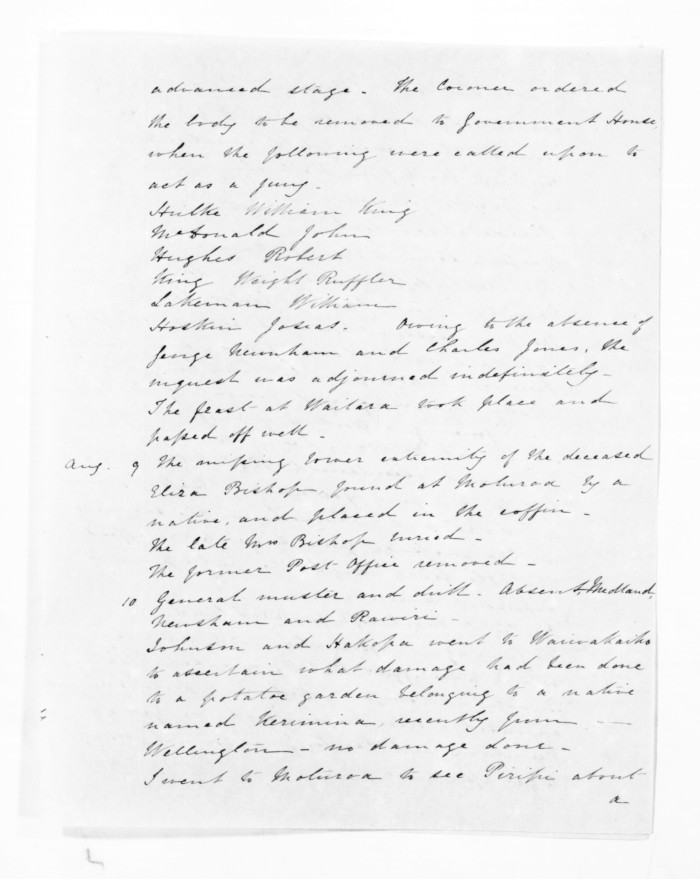 advanced stage. The Coroner ordered
the body to be removed to Government House,
when the following were called upon to
act as a jury.
Hulke William King
McDonald John
Hughes Robert
King Wright Ruffler
Lakeman William
Hoskin Josias. Owing to the absence of
George Newsham and Charles Jones, the
inquest was adjourned indefinitely.
The feast at Waitara took place and
passed off well.
Aug. 9 The missing lower extremity of the deceased
Eliza Bishop, found at Moturoa by a
native, and placed in the coffin.
The late Mrs Bishop buried.
The former Post Office removed.
10 General muster and drill. Absent, Medland,
Newsham and Rawiri.
Johnson and Hakopa went to Waiwakaiho
to ascertain what damage had been done
to a potatoe garden belonging to a native
named Kerimina, recently from
Wellington - no damage done.
I went to Moturoa to see Piripi about
a